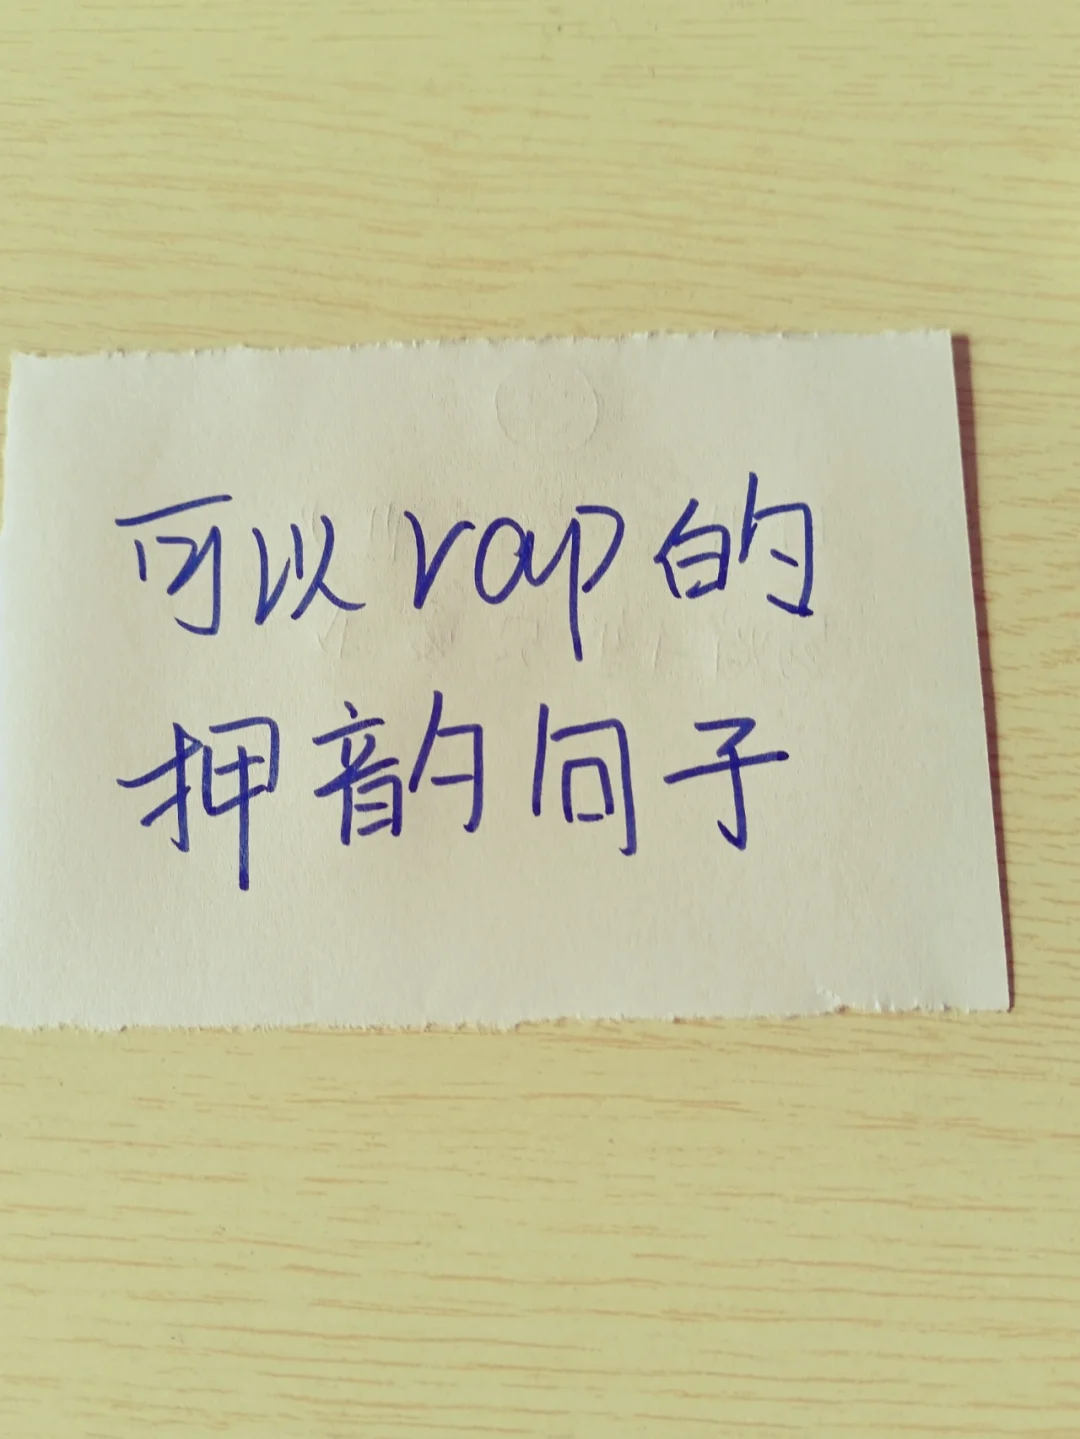 可以rap的
押韵句子